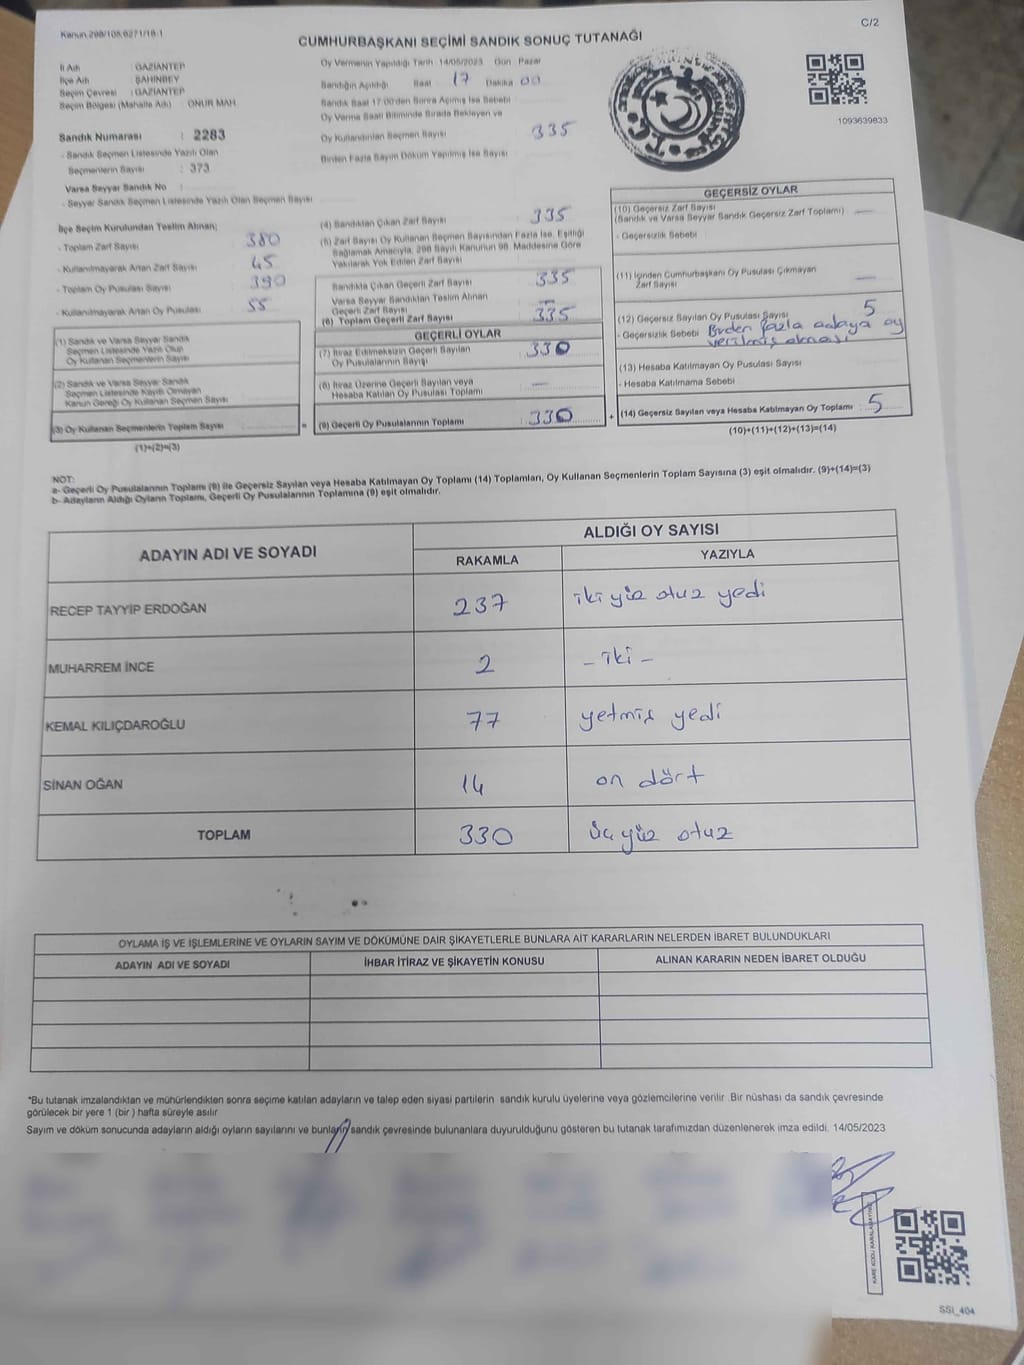 Kanun.298/105,6271/18-1
C/2
CUMHURBAŞKANI SEÇİMİ SANDIK SONUÇ TUTANAĞI
İl Adı : GAZİANTEP
İlçe Adı : ŞAHİNBEY
Seçim Çevresi : GAZİANTEP
Seçim Bölgesi (Mahalle Adı) : ONUR MAH.
Sandık Numarası : 2283
- Sandık Seçmen Listesinde Yazılı Olan
Seçmenlerin Sayısı : 373
Varsa Seyyar Sandık No :
- Seyyar Sandık Seçmen Listesinde Yazılı Olan Seçmen Sayısı
Oy Vermenin Yapıldığı Tarih 14/05/2023 Gün : Pazar
Sandığın Açıldığı Saat 17 Dakika 00
Sandık Saat 17:00'den Sonra Açılmış İse Sebebi
Oy Verme Saati Bitiminde Sırada Bekleyen ve
Oy Kullandırılan Seçmen Sayısı 335
Birden Fazla Sayım Döküm Yapılmış İse Sayısı
1093639833
İlçe Seçim Kurulundan Teslim Alınan;
- Toplam Zarf Sayısı 380
- Kullanılmayarak Artan Zarf Sayısı 45
- Toplam Oy Pusulası Sayısı 390
- Kullanılmayarak Artan Oy Pusulası 55
(1) Sandık ve Varsa Seyyar Sandık
Seçmen Listesinde Yazılı Olup
Oy Kullanan Seçmenlerin Sayısı
(2) Sandık ve Varsa Seyyar Sandık
Seçmen Listesinde Kayıtlı Olmayan
Kanun Gereği Oy Kullanan Seçmen Sayısı
(3) Oy Kullanan Seçmenlerin Toplam Sayısı =
(1)+(2)=(3)
(4) Sandıktan Çıkan Zarf Sayısı 335
(5) Zarf Sayısı Oy Kullanan Seçmen Sayısından Fazla İse, Eşitliği
Sağlamak Amacıyla, 298 Sayılı Kanunun 98. Maddesine Göre
Yakılarak Yok Edilen Zarf Sayısı
Sandıkta Çıkan Geçerli Zarf Sayısı 335
Varsa Seyyar Sandıktan Teslim Alınan
Geçerli Zarf Sayısı —
(6) Toplam Geçerli Zarf Sayısı 335
GEÇERLİ OYLAR
(7) İtiraz Edilmeksizin Geçerli Sayılan
Oy Pusulalarının Sayısı 330
(8) İtiraz Üzerine Geçerli Sayılan veya
Hesaba Katılan Oy Pusulası Toplamı —
(9) Geçerli Oy Pusulalarının Toplamı 330 +
GEÇERSİZ OYLAR
(10) Geçersiz Zarf Sayısı
(Sandık ve Varsa Seyyar Sandık Geçersiz Zarf Toplamı) —
- Geçersizlik Sebebi
(11) İçinden Cumhurbaşkanı Oy Pusulası Çıkmayan
Zarf Sayısı —
(12) Geçersiz Sayılan Oy Pusulası Sayısı 5
- Geçersizlik Sebebi Birden fazla adaya oy
verilmiş olması
(13) Hesaba Katılmayan Oy Pusulası Sayısı
- Hesaba Katılmama Sebebi
(14) Geçersiz Sayılan veya Hesaba Katılmayan Oy Toplamı : 5
(10)+(11)+(12)+(13)=(14)
NOT:
a- Geçerli Oy Pusulalarının Toplamı (9) ile Geçersiz Sayılan veya Hesaba Katılmayan Oy Toplamı (14) Toplamları, Oy Kullanan Seçmenlerin Toplam Sayısına (3) eşit olmalıdır. (9)+(14)=(3)
b- Adayların Aldığı Oyların Toplamı, Geçerli Oy Pusulalarının Toplamına (9) eşit olmalıdır.
ADAYIN ADI VE SOYADI
ALDIĞI OY SAYISI
RAKAMLA YAZIYLA
RECEP TAYYİP ERDOĞAN 237 iki yüz otuz yedi
MUHARREM İNCE 2 – iki –
KEMAL KILIÇDAROĞLU 77 yetmiş yedi
SİNAN OĞAN 14 on dört
TOPLAM 330 üç yüz otuz
OYLAMA İŞ VE İŞLEMLERİNE VE OYLARIN SAYIM VE DÖKÜMÜNE DAİR ŞİKAYETLERLE BUNLARA AİT KARARLARIN NELERDEN İBARET BULUNDUKLARI
ADAYIN ADI VE SOYADI İHBAR İTİRAZ VE ŞİKAYETİN KONUSU ALINAN KARARIN NEDEN İBARET OLDUĞU
*Bu tutanak imzalandıktan ve mühürlendikten sonra seçime katılan adayların ve talep eden siyasi partilerin sandık kurulu üyelerine veya gözlemcilerine verilir .Bir nüshası da sandık çevresinde
görülecek bir yere 1 (bir ) hafta süreyle asılır
Sayım ve döküm sonucunda adayların aldığı oyların sayılarını ve bunların sandık çevresinde bulunanlara duyurulduğunu gösteren bu tutanak tarafımızdan düzenlenerek imza edildi. 14/05/2023
KARE KODU KARALAMAYINIZ
SSİ_404